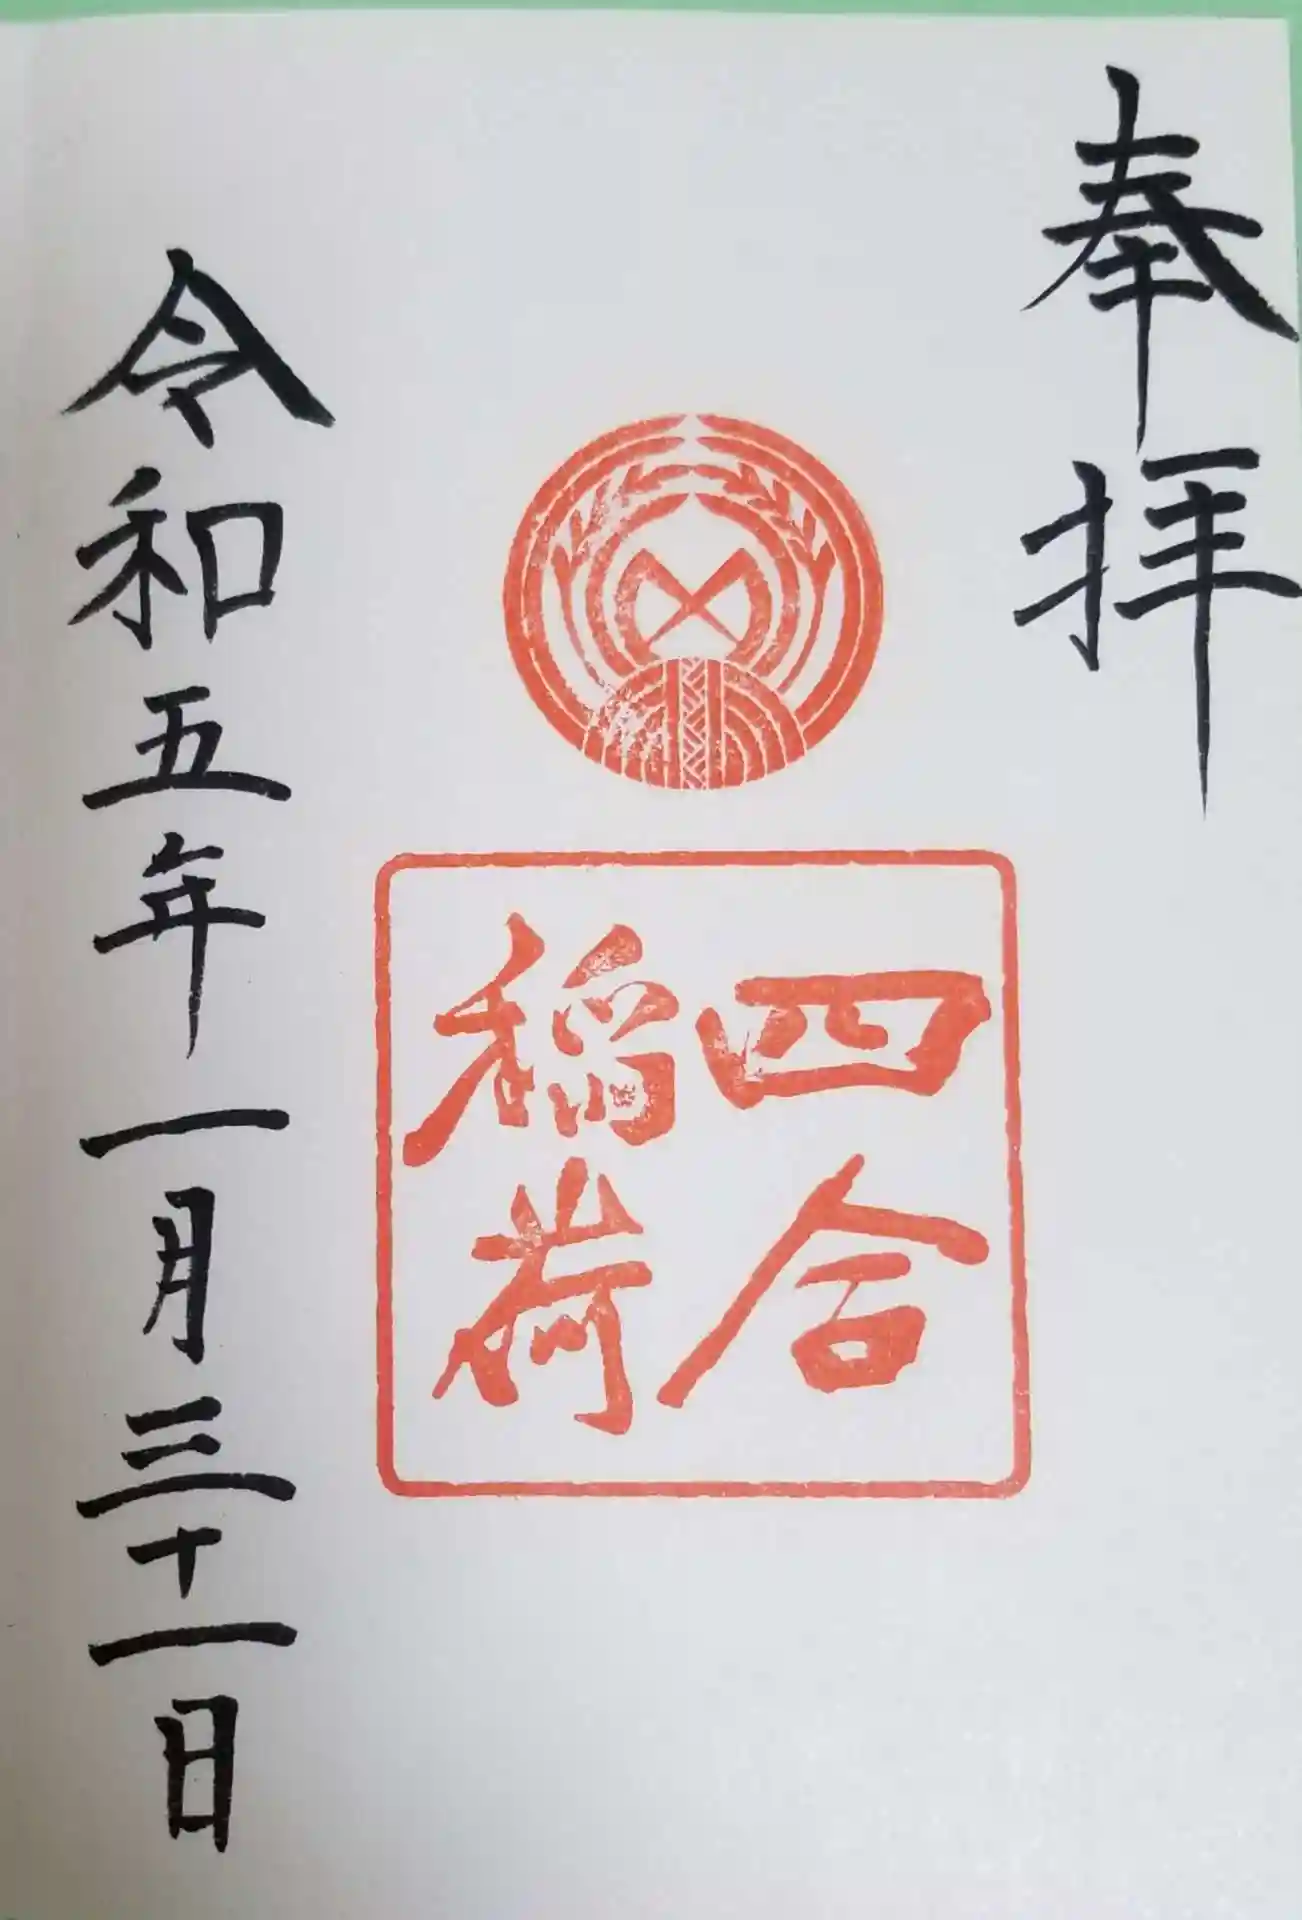 奉拝
四合
稲荷
令和五年一月三十一日